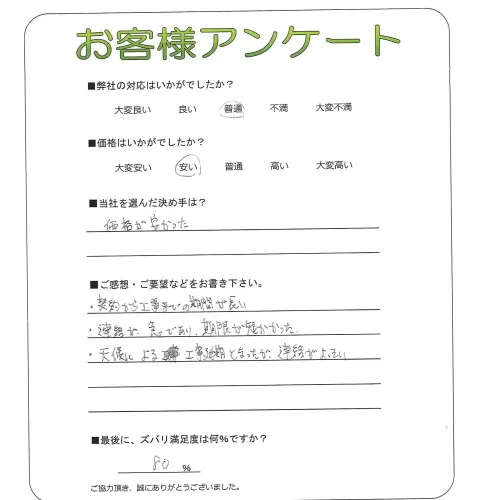 お客様アンケート
■弊社の対応はいかがでしたか？
大変良い 良い 普通 不満 大変不満
■価格はいかがでしたか？
大変安い 安い 普通 高い 大変高い
■当社を選んだ決め手は？
価格が安かった
■ご感想・ご要望などをお書き下さい。
・契約から工事までの期間が長い
・連絡が急であり、期限が短かかった
・天候による 工事延期となったが、連絡が
■最後に、ズバリ満足度は何%ですか？
80 %
ご協力頂き、誠にありがとうございました。